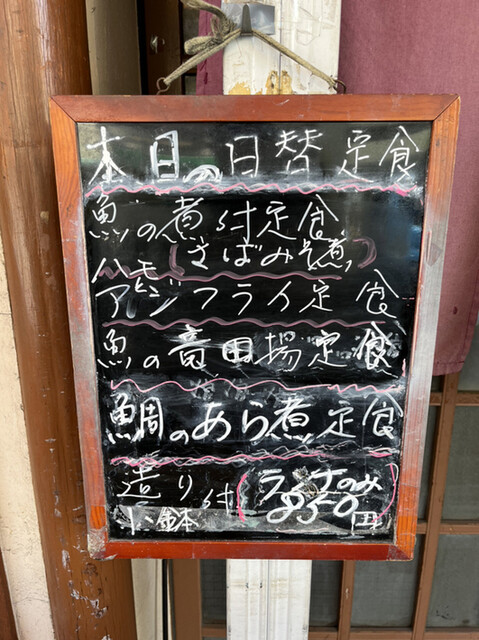 本日の日替定食
魚の煮付定食
(さばみそ煮)
ハモ
アジフライ定食
魚の竜田揚定食
鯛のあら煮定食
造り
小鉢付
(ランチのみ
850円)